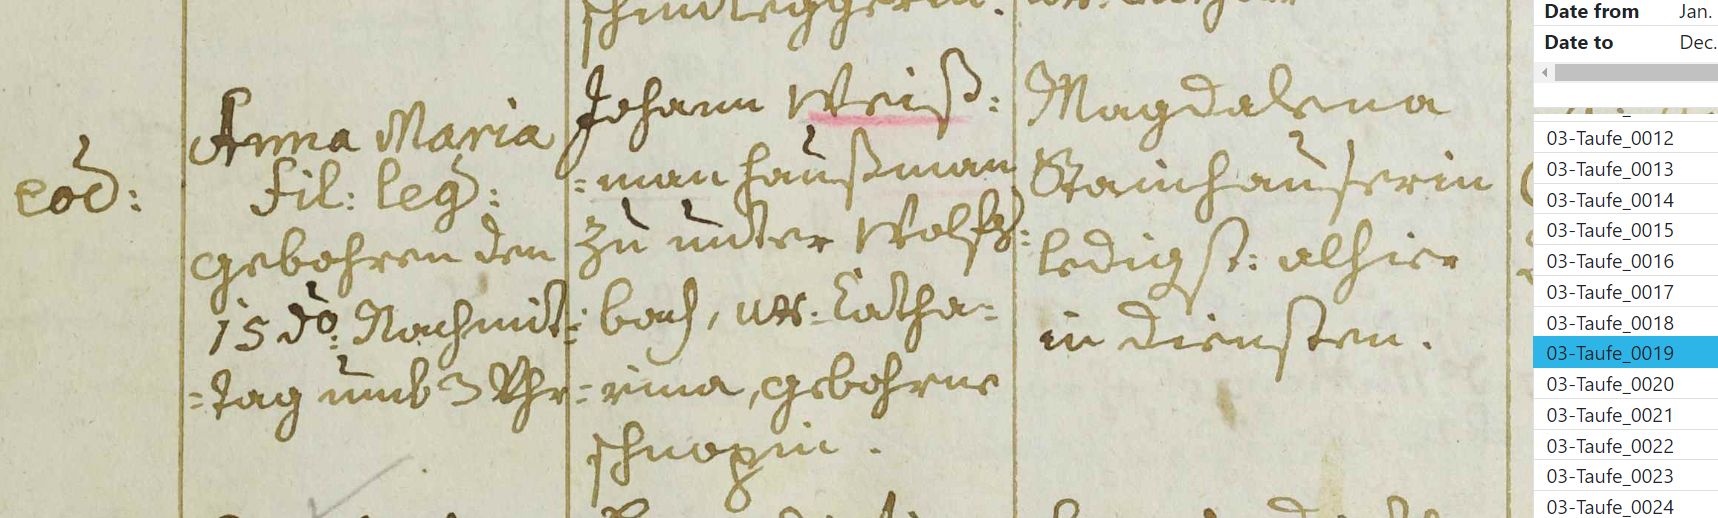 eod:
Anna Maria
fil: leg:
gebohren den
15 do: Nachmit=
=tag umb 3 Uhr
Johann Weiß=
=man haußman
zu unter Wolfs=
bach, ux: Catha=
=rina, gebohrne
Magdalena
Stainhauserin
ledig st: alhier
in diensten.
Date from Jan.
Date to Dec.
03-Taufe_0012
03-Taufe_0013
03-Taufe_0014
03-Taufe_0015
03-Taufe_0016
03-Taufe_0017
03-Taufe_0018
03-Taufe_0019
03-Taufe_0020
03-Taufe_0021
03-Taufe_0022
03-Taufe_0023
03-Taufe_0024